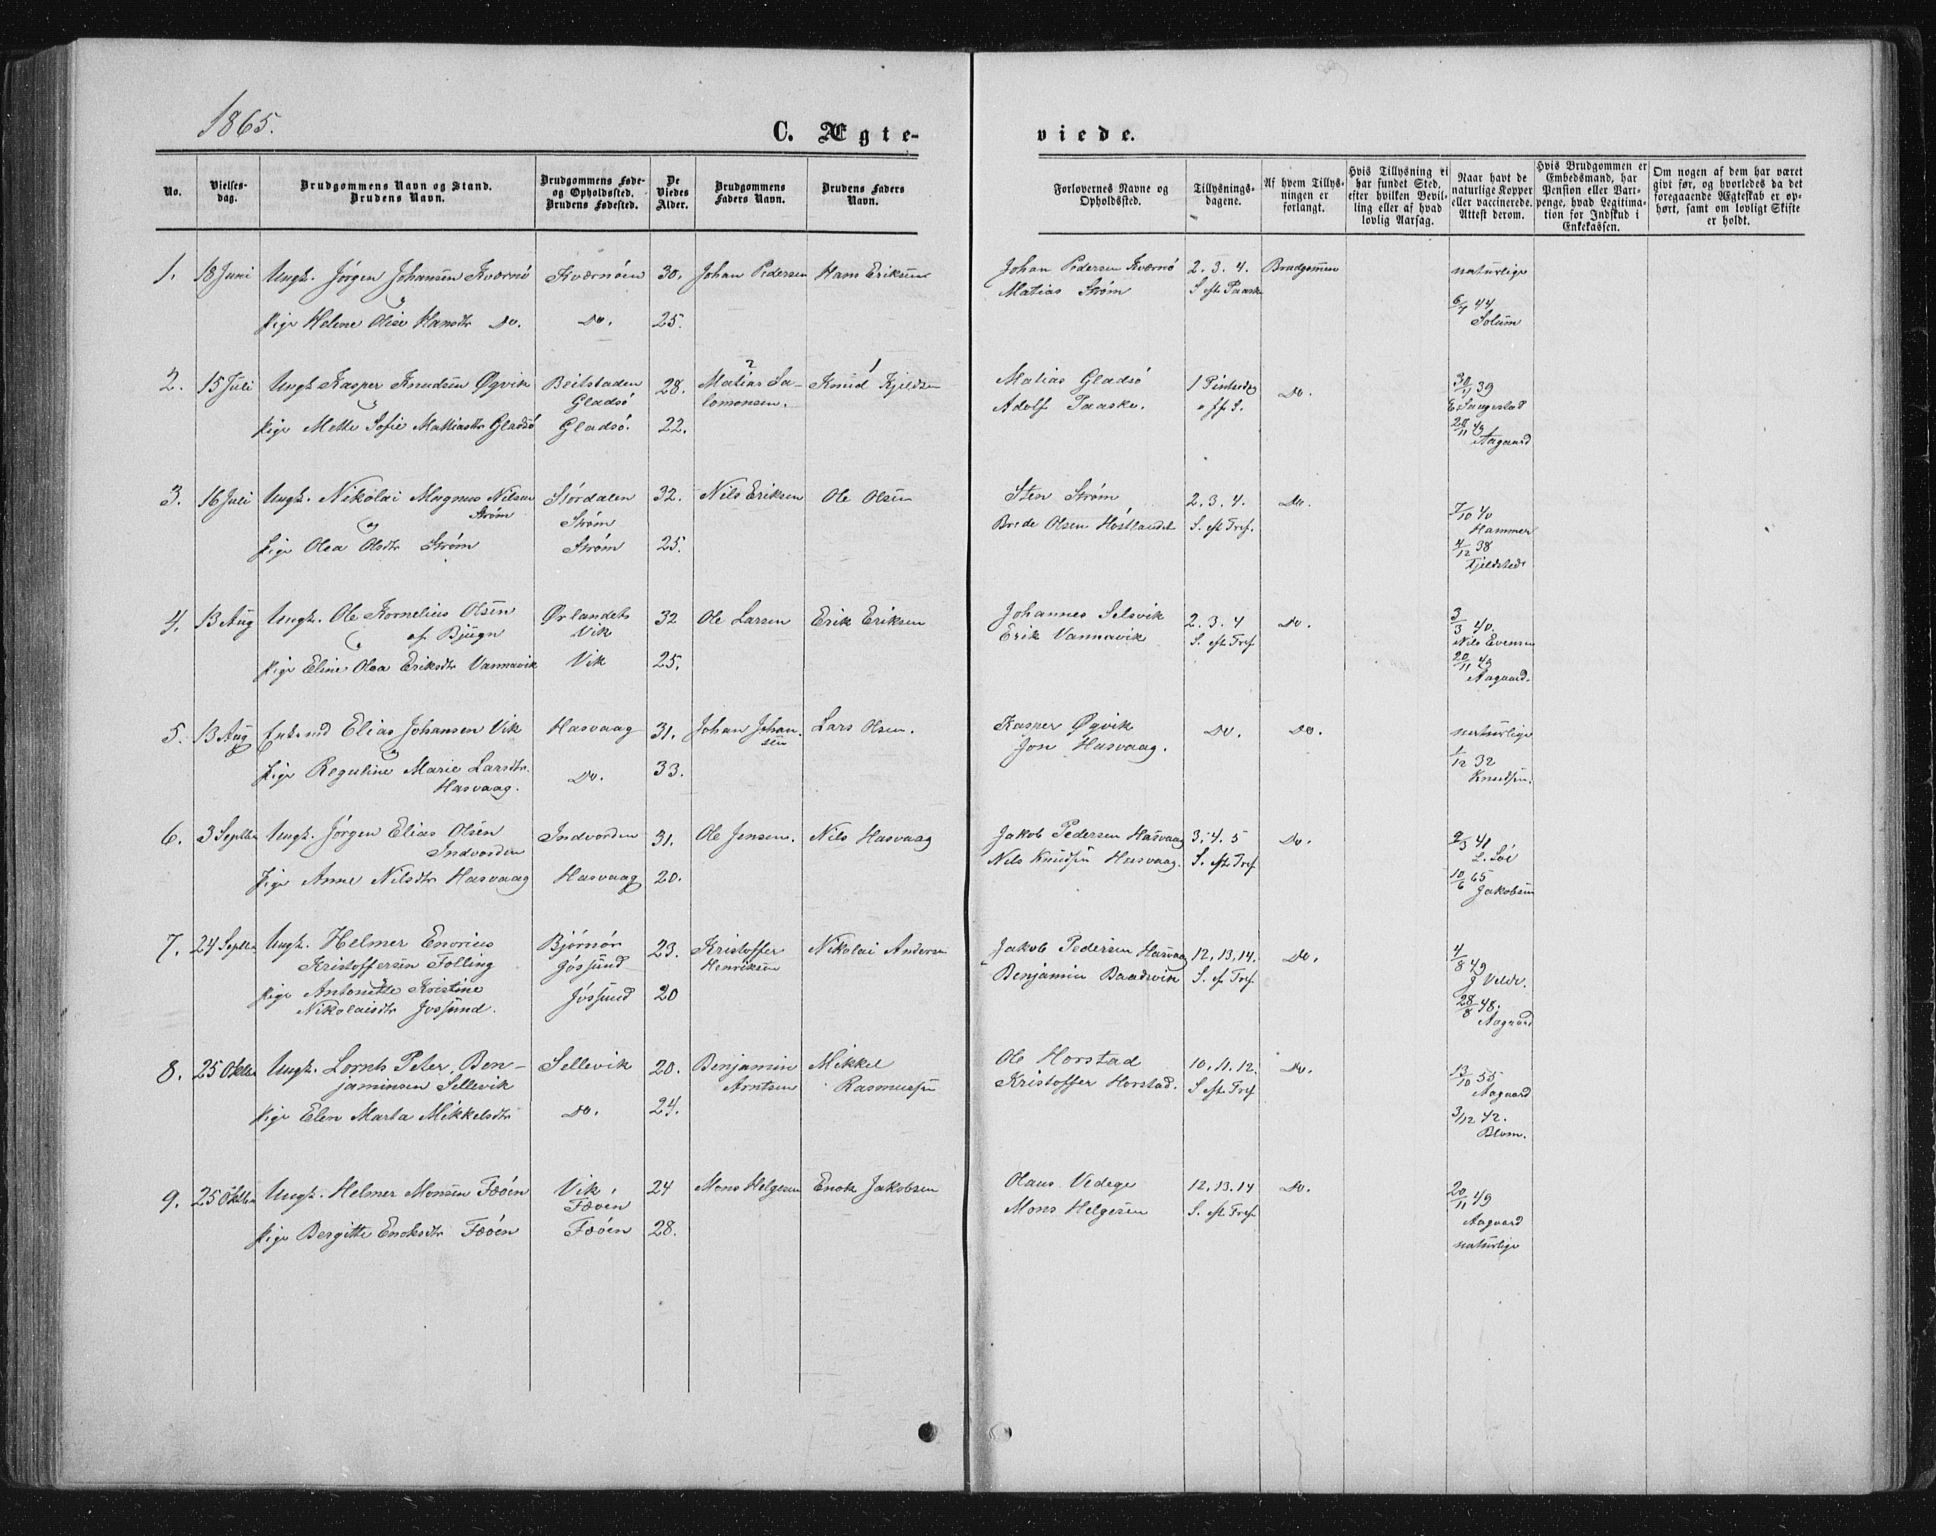 1865.
C. Ægte-
viede.
No.
Vielses-
dag.
Brudgommens Navn og Stand.
Brudens Navn.
Brudgommens Føde-
og Opholdssted.
Brudens Fødested.
De
Viedes
Alder.
Brudgommens
Faders Navn.
Brudens Faders
Navn.
Forlovernes Navne og
Opholdssted.
Tillysnings-
dagene.
Af hvem Tillys-
ningen er
forlangt.
Hvis Tillysning ei
har fundet Sted,
efter hvilken Bevil-
ling eller af hvad
lovlig Aarsag.
Naar havt de
naturlige Kopper
eller vaccinerede.
Attest derom.
Hvis Brudgommen er
Embedsmand, har
Pension eller Vart-
penge, hvad Legitima-
tion for Indskud i
Enkekassen.
Om nogen af dem har været
givt før, og hvorledes da det
foregaaende Ægteskab er op-
hørt, samt om lovligt Skifte
er holdt.
1. 18 Juni Ungk. Jørgen Johansen Kværnø Kværnøen 30. Johan Pedersen Hans Eriksen Johan Pedersen Kværnø 2. 3. 4. Brudgommen naturlige
og Matias Strøm S. eft. Paaske
Pige Helene Olise Hansdtr Do. Do. 25. 6/7 44
Solum
2. 15 Juli Ungk. Kasper Knudsen Øyvik Beitstaden 28. 2 Matias Sa- 1 Knud Kjeldsen Matias Gladsø 1 Pintsedag Do. 30/11 39
og Gladsø lomonsen. Adolf Paaske. o ff. S.
Pige Mette Sofie Matiasdtr Gladsø Gladsø. 22. 28/11 43
Aagaard
3. 16 Juli Ungk. Nikolai Magnus Nilsen Størdalen 32. Nils Eriksen Ole Olsen Sten Strøm 2. 3. 4. Do.
Strøm Strøm Brede Olsen Høstlandet S. eft Tref. 7/10 40
og Hammer
Pige Olea Olsdtr Strøm Strøm 25. 4/12 38
Kjeldsted
4. 13 Aug Ungk. Ole Kornelius Olsen Ørlandet 32 Ole Larsen Erik Eriksen Johannes Selsvik 2. 3. 4 Do. 3/3 40.
og af Bjugn Vik Erik Vannavik S. eft Tref. Nils Evensen
Pige Eline Olea Eriksdtr Vannavik Vik 25. 20/11 43
Aagaard.
5. 13 Aug Enkemd Elias Johansen Vik Hasvaag 31. Johan Johan- Lars Olsen. Kasper Øyvik Do. Do. naturlige
og sen Jon Hasvaag.
Pige Reguline Marie Larsdtr. Do. 33. 1/12 32
Hasvaag. Knudsen.
6. 3 Septbr Ungk. Jørgen Elias Olsen Indvorden 31. Ole Jensen. Nils Hasvaag Jakob Pedersen Hasvaag 3. 4. 5 Do. 9/3 41
Indvorden Nils Knudsen Hasvaag. S. eft Tref L. Söe
Pige Anne Nilsdtr Hasvaag Hasvaag 20. 10/6 65
Jakobsen
7. 24 Septbr Ungk. Helmer Enorius Bjørnør 23. Kristoffer Nikolai Andersen Jakob Pedersen Hasvaag 12, 13, 14. Do. 4/8 49
Kristoffersen Folling Jøssund Henriksen Benjamin Baadsvik S. ef Tref J Velde.
Pige Antonette Kristine Jøssund 20 28/8 48.
Nikolaisdtr Jøssund. Aagaard
8. 25 Oktbr Ungk. Lornts Peter Ben- Sellevik 20. Benjamin Mikkel Ole Horstad 10. 11. 12. Do. 13/10 55
jaminsen Sellevik Arntsen Rasmussen Kristoffer Horstad. S eft Tref Aagaard
Pige Elen Marta Mikkelsdtr Do. 24. 3/12 42.
Blom.
9. 25 Oktbr Ungk. Helmer Monsen Fæøen Vik 24 Mons Helgesen Enok Jakobsen Olaus Vedege 12. 13. 14 Do. 20/11 49
Fæøen Mons Helgesen S. eft Tref. Aagaard
Pige Bergitte Enoksdtr Fæøen Fæøen 28. naturlige